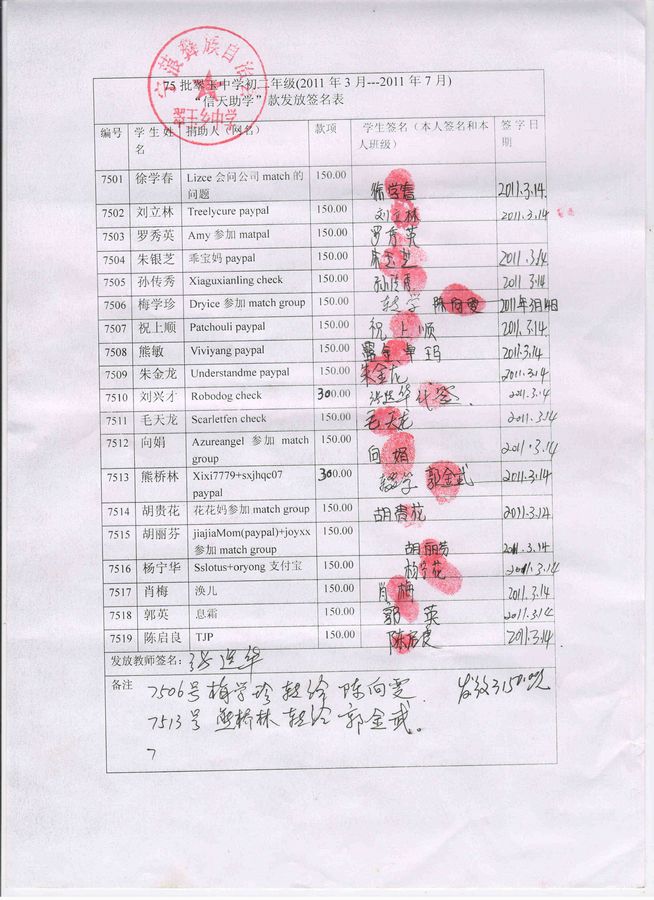 75批翠玉中学初二年级(2011年3月---2011年7月)
“信天助学”款发放签名表
编号 学生姓名 捐助人（网名） 款项 学生签名（本人签名和本人班级） 签字日期
7501 徐学春 Lizce 会问公司 match 的问题 150.00 徐学春 2011.3.14.
7502 刘立林 Treelycure paypal 150.00 刘立林 2011.3.14
7503 罗秀英 Amy 参加 matpal 150.00 罗秀英
7504 朱银芝 乖宝妈 paypal 150.00 2011.3.14
7505 孙传秀 Xiaguxianling check 150.00 孙传秀 2011.3.14
7506 梅学珍 Dryice 参加 match group 150.00 转学 陈向雯 2011年3月14日
7507 祝上顺 Patchouli paypal 150.00 祝上顺 2011.3.14.
7508 熊敏 Viviyang paypal 150.00 2011.3.14
7509 朱金龙 Understandme paypal 150.00 朱金龙 2011.3.14
7510 刘兴才 Robodog check 300.00 代签 2011.3.14.
7511 毛天龙 Scarletfen check 150.00 毛天龙 2011.3.14
7512 向娟 Azureangel 参加 match group 150.00 向娟 2011.3.14
7513 熊桥林 Xixi7779+sxjhqc07 paypal 300.00 辍学 郭金武 2011.3.14
7514 胡贵花 花花妈参加 match group 150.00 胡贵花 2011.3.14
7515 胡丽芬 jiajiaMom(paypal)+joyxx 参加 match group 150.00 胡丽芬 2011.3.14
7516 杨宁华 Sslotus+oryong 支付宝 150.00 杨宁花 2011.3.14
7517 肖梅 涣儿 150.00 肖梅 2011.3.14
7518 郭英 息霜 150.00 郭英 2011.3.14
7519 陈启良 TJP 150.00 陈启良 2011.3.14
发放教师签名：
备注 7506号梅学珍转给陈向雯. 发放3150.00元
7513号熊桥林转给郭金武。
7